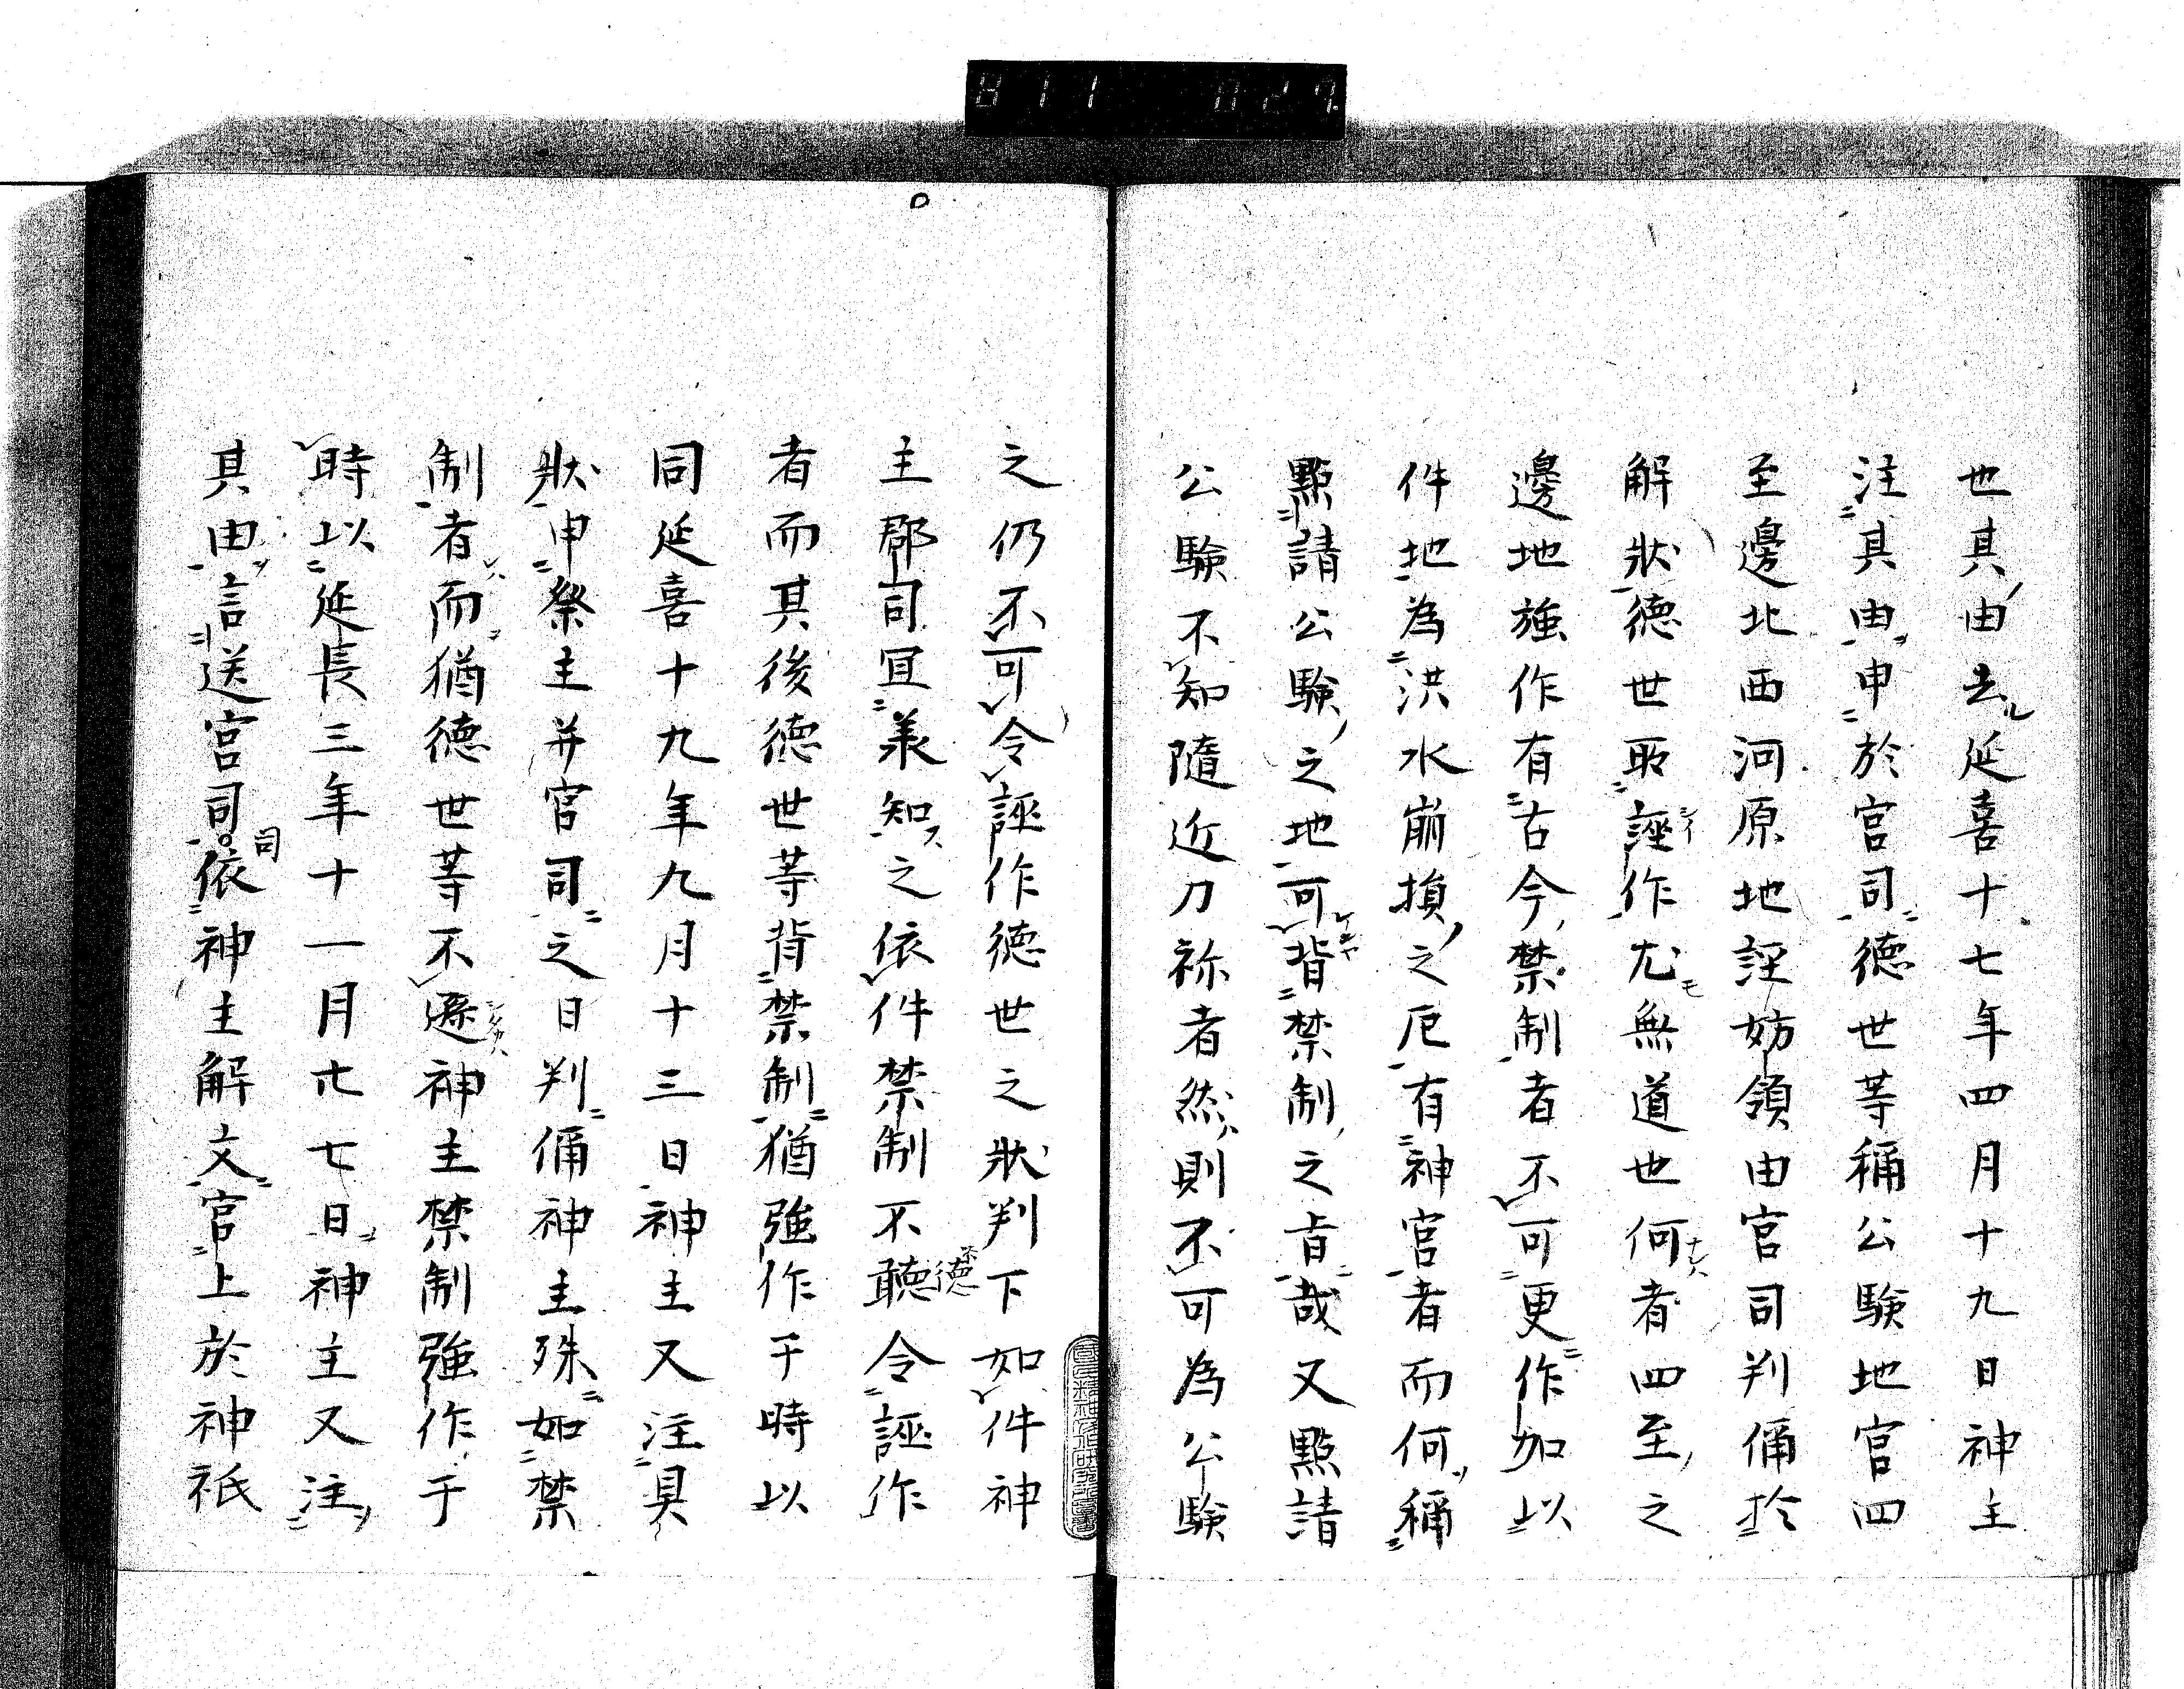 811 027.
也其由去延喜十七年四月十九日神主
注其由申於宮司德世等稱公驗地官四
至邊北西河原地誣妨領由官司判俑於
解狀德世取誣作尤無道也何者四至之
邊地強作有古今禁制者不可更作加以
件地為洪水崩損之厄有神宮者而何稱
點請公驗之地可背禁制之旨哉又點請
公驗不知隨近刀祢者然則不可為公驗
之仍不可令誣作德世之狀判下如件神
主郡司冝羕知之依件禁制不聴令誣作
者而其後德世等背禁制猶強作于時以
同延喜十九年九月十三日神主又注具
狀申祭主并宮司之日判俑神主殊如禁
制者而猶德世等不遜神主禁制強作于
時以延長三年十一月廿七日神主又注
其由言送宮司依神主解文宮上於神祇